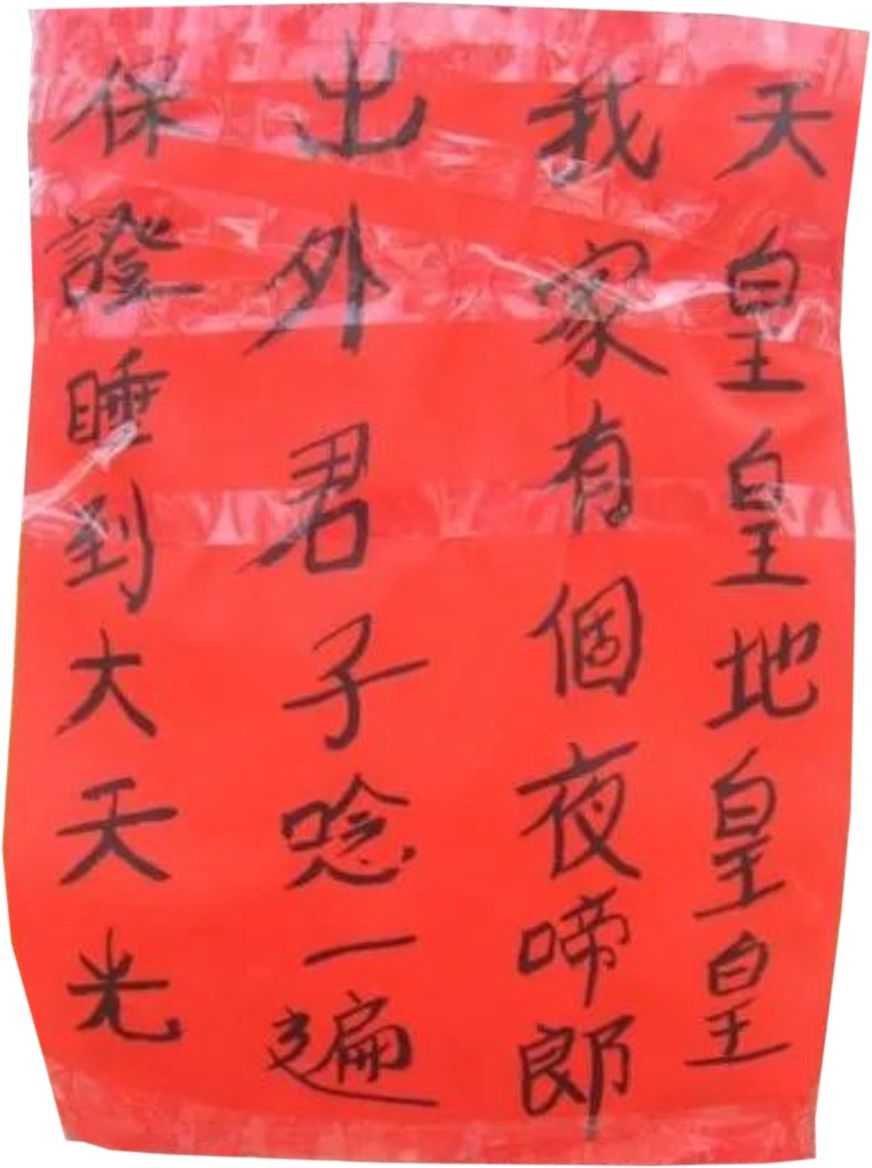 天皇皇地皇皇
我家有個夜啼郎
出外君子唸一遍
保證睡到大天光